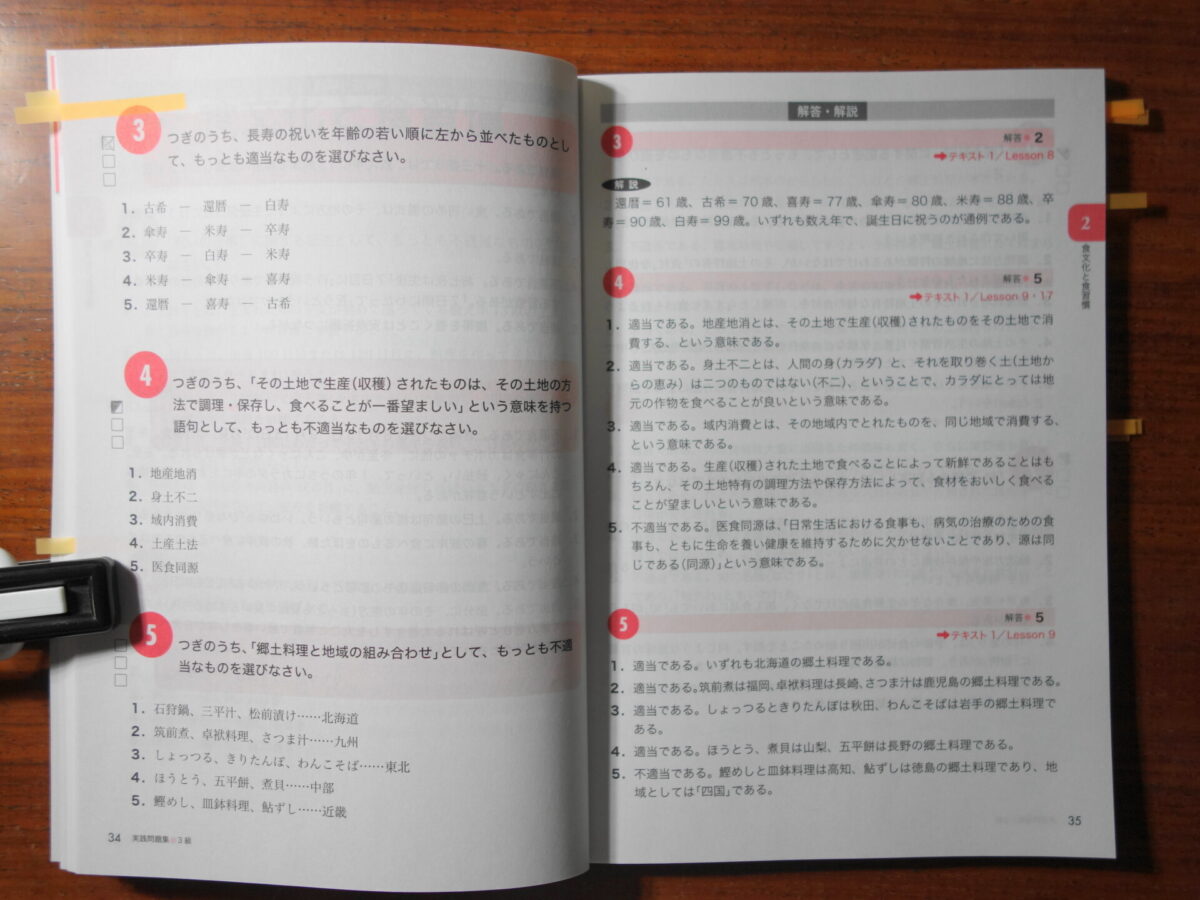 3
つぎのうち、長寿の祝いを年齢の若い順に左から並べたものとし
て、もっとも適当なものを選びなさい。
1. 古希 ― 還暦 ― 白寿
2. 傘寿 ― 米寿 ― 卒寿
3. 卒寿 ― 白寿 ― 米寿
4. 米寿 ― 傘寿 ― 喜寿
5. 還暦 ― 喜寿 ― 古希
4
つぎのうち、「その土地で生産(収穫)されたものは、その土地の方
法で調理・保存し、食べることが一番望ましい」という意味を持つ
語句として、もっとも不適当なものを選びなさい。
1. 地産地消
2. 身土不二
3. 域内消費
4. 土産土法
5. 医食同源
5
つぎのうち、「郷土料理と地域の組み合わせ」として、もっとも不適
当なものを選びなさい。
1. 石狩鍋、三平汁、松前漬け……北海道
2. 筑前煮、卓袱料理、さつま汁……九州
3. しょっつる、きりたんぽ、わんこそば……東北
4. ほうとう、五平餅、煮貝……中部
5. 鰹めし、皿鉢料理、鮎ずし……近畿
34 実践問題集 3級
解答・解説
3
解答 2
➡テキスト1/Lesson 8
解説
還暦=61歳、古希=70歳、喜寿=77歳、傘寿=80歳、米寿=88歳、卒
寿=90歳、白寿=99歳。いずれも数え年で、誕生日に祝うのが通例である。
4
解答 5
➡テキスト1/Lesson 9・17
1. 適当である。地産地消とは、その土地で生産(収穫)されたものをその土地で消
費する、という意味である。
2. 適当である。身土不二とは、人間の身(カラダ)と、それを取り巻く土(土地か
らの恵み)は二つのものではない(不二)、ということで、カラダにとっては地
元の作物を食べることが良いという意味である。
3. 適当である。域内消費とは、その地域内でとれたものを、同じ地域で消費する、
という意味である。
4. 適当である。生産(収穫)された土地で食べることによって新鮮であることはも
ちろん、その土地特有の調理方法や保存方法によって、食材をおいしく食べる
ことが望ましいという意味である。
5. 不適当である。医食同源は、「日常生活における食事も、病気の治療のための食
事も、ともに生命を養い健康を維持するために欠かせないことであり、源は同
じである(同源)」という意味である。
5
解答 5
➡テキスト1/Lesson 9
1. 適当である。いずれも北海道の郷土料理である。
2. 適当である。筑前煮は福岡、卓袱料理は長崎、さつま汁は鹿児島の郷土料理である。
3. 適当である。しょっつるときりたんぽは秋田、わんこそばは岩手の郷土料理で
ある。
4. 適当である。ほうとう、煮貝は山梨、五平餅は長野の郷土料理である。
5. 不適当である。鰹めしと皿鉢料理は高知、鮎ずしは徳島の郷土料理であり、地
域としては「四国」である。
2
食文化と食習慣
35